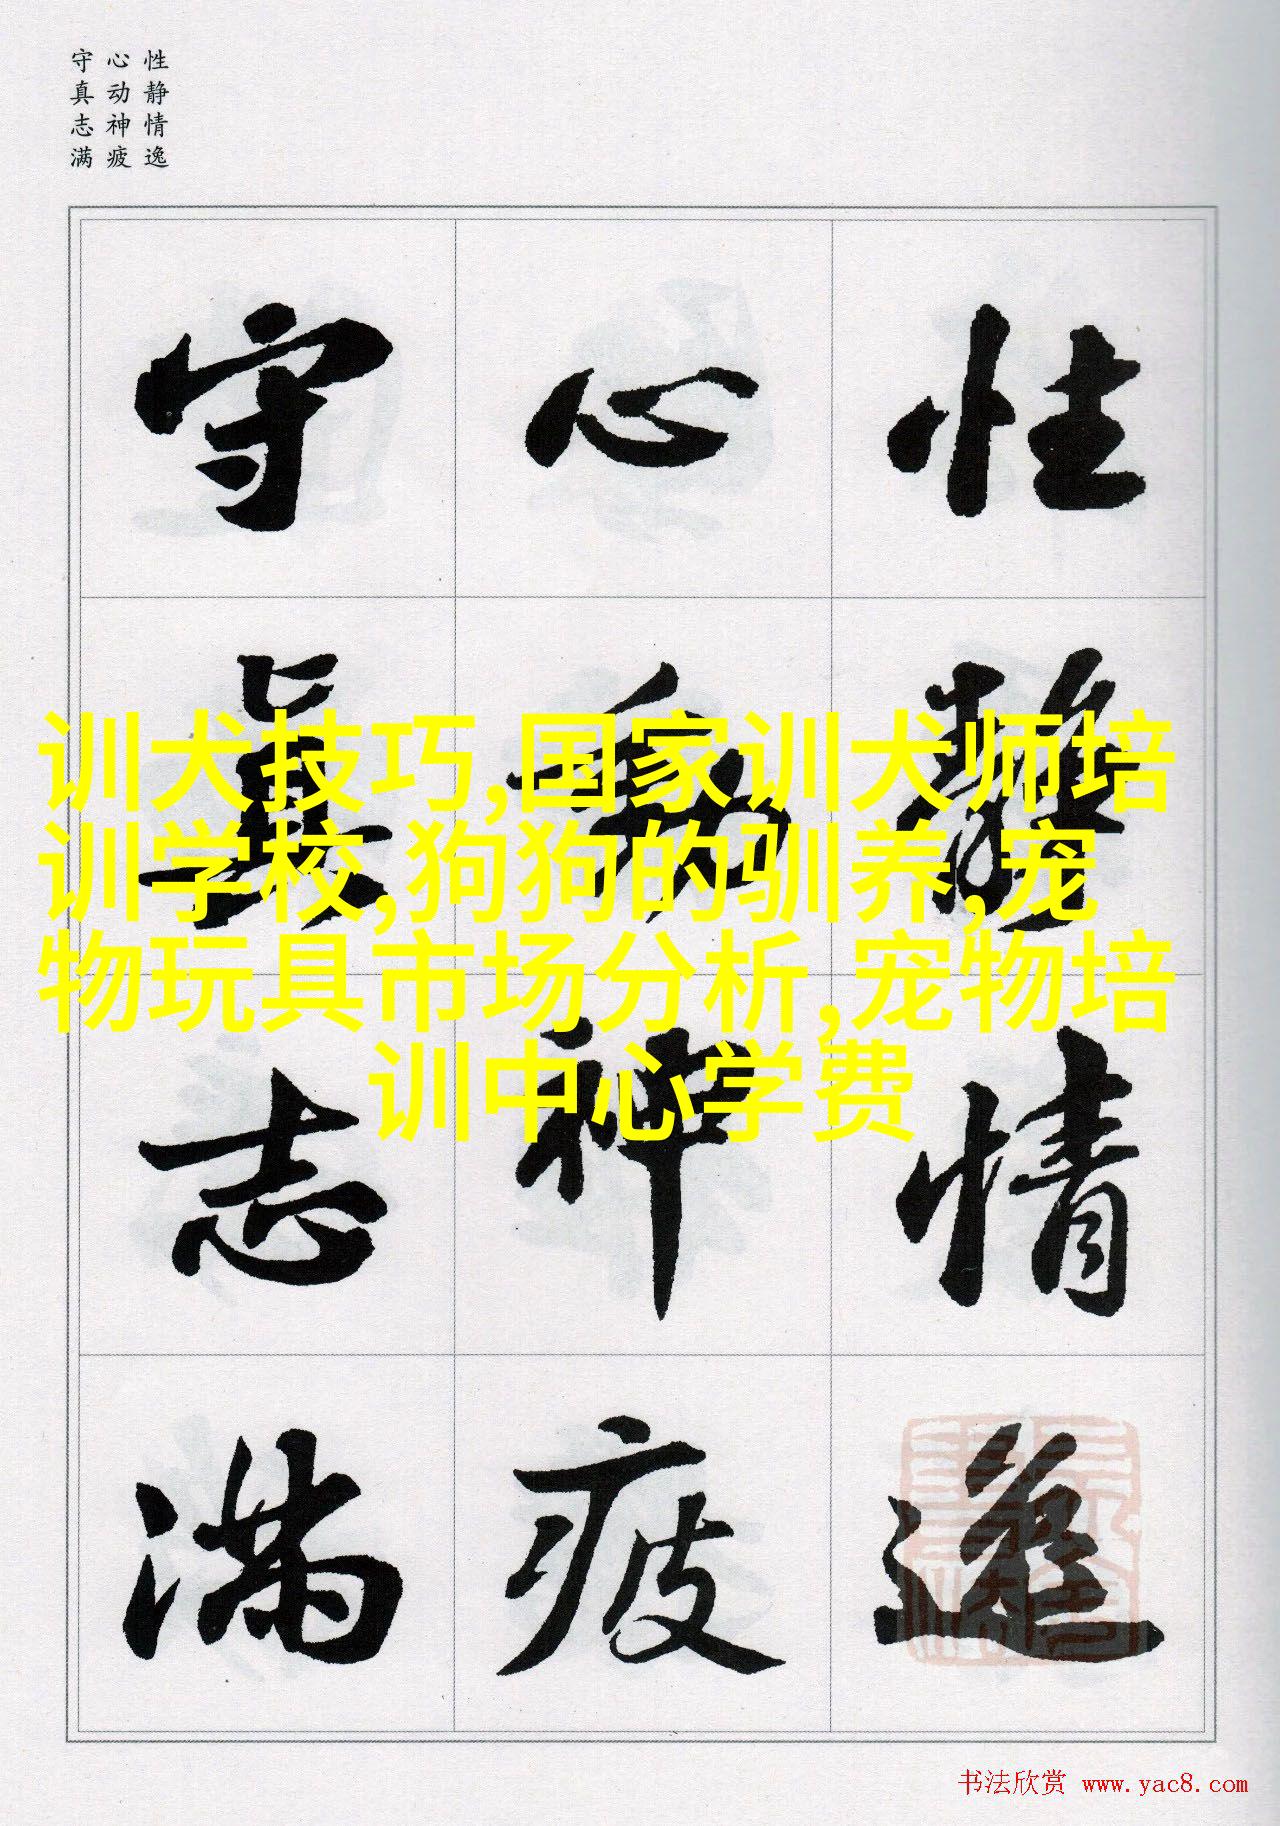 性静情逸
心动神疲
守真志满
性静情逸
心動神疲
守真志满
训犬技巧,国家训犬师培
训学校,狗狗的驯养,宠
物玩具市场分析,宠物培
训中心学费
书法欣赏 www.yac8.com